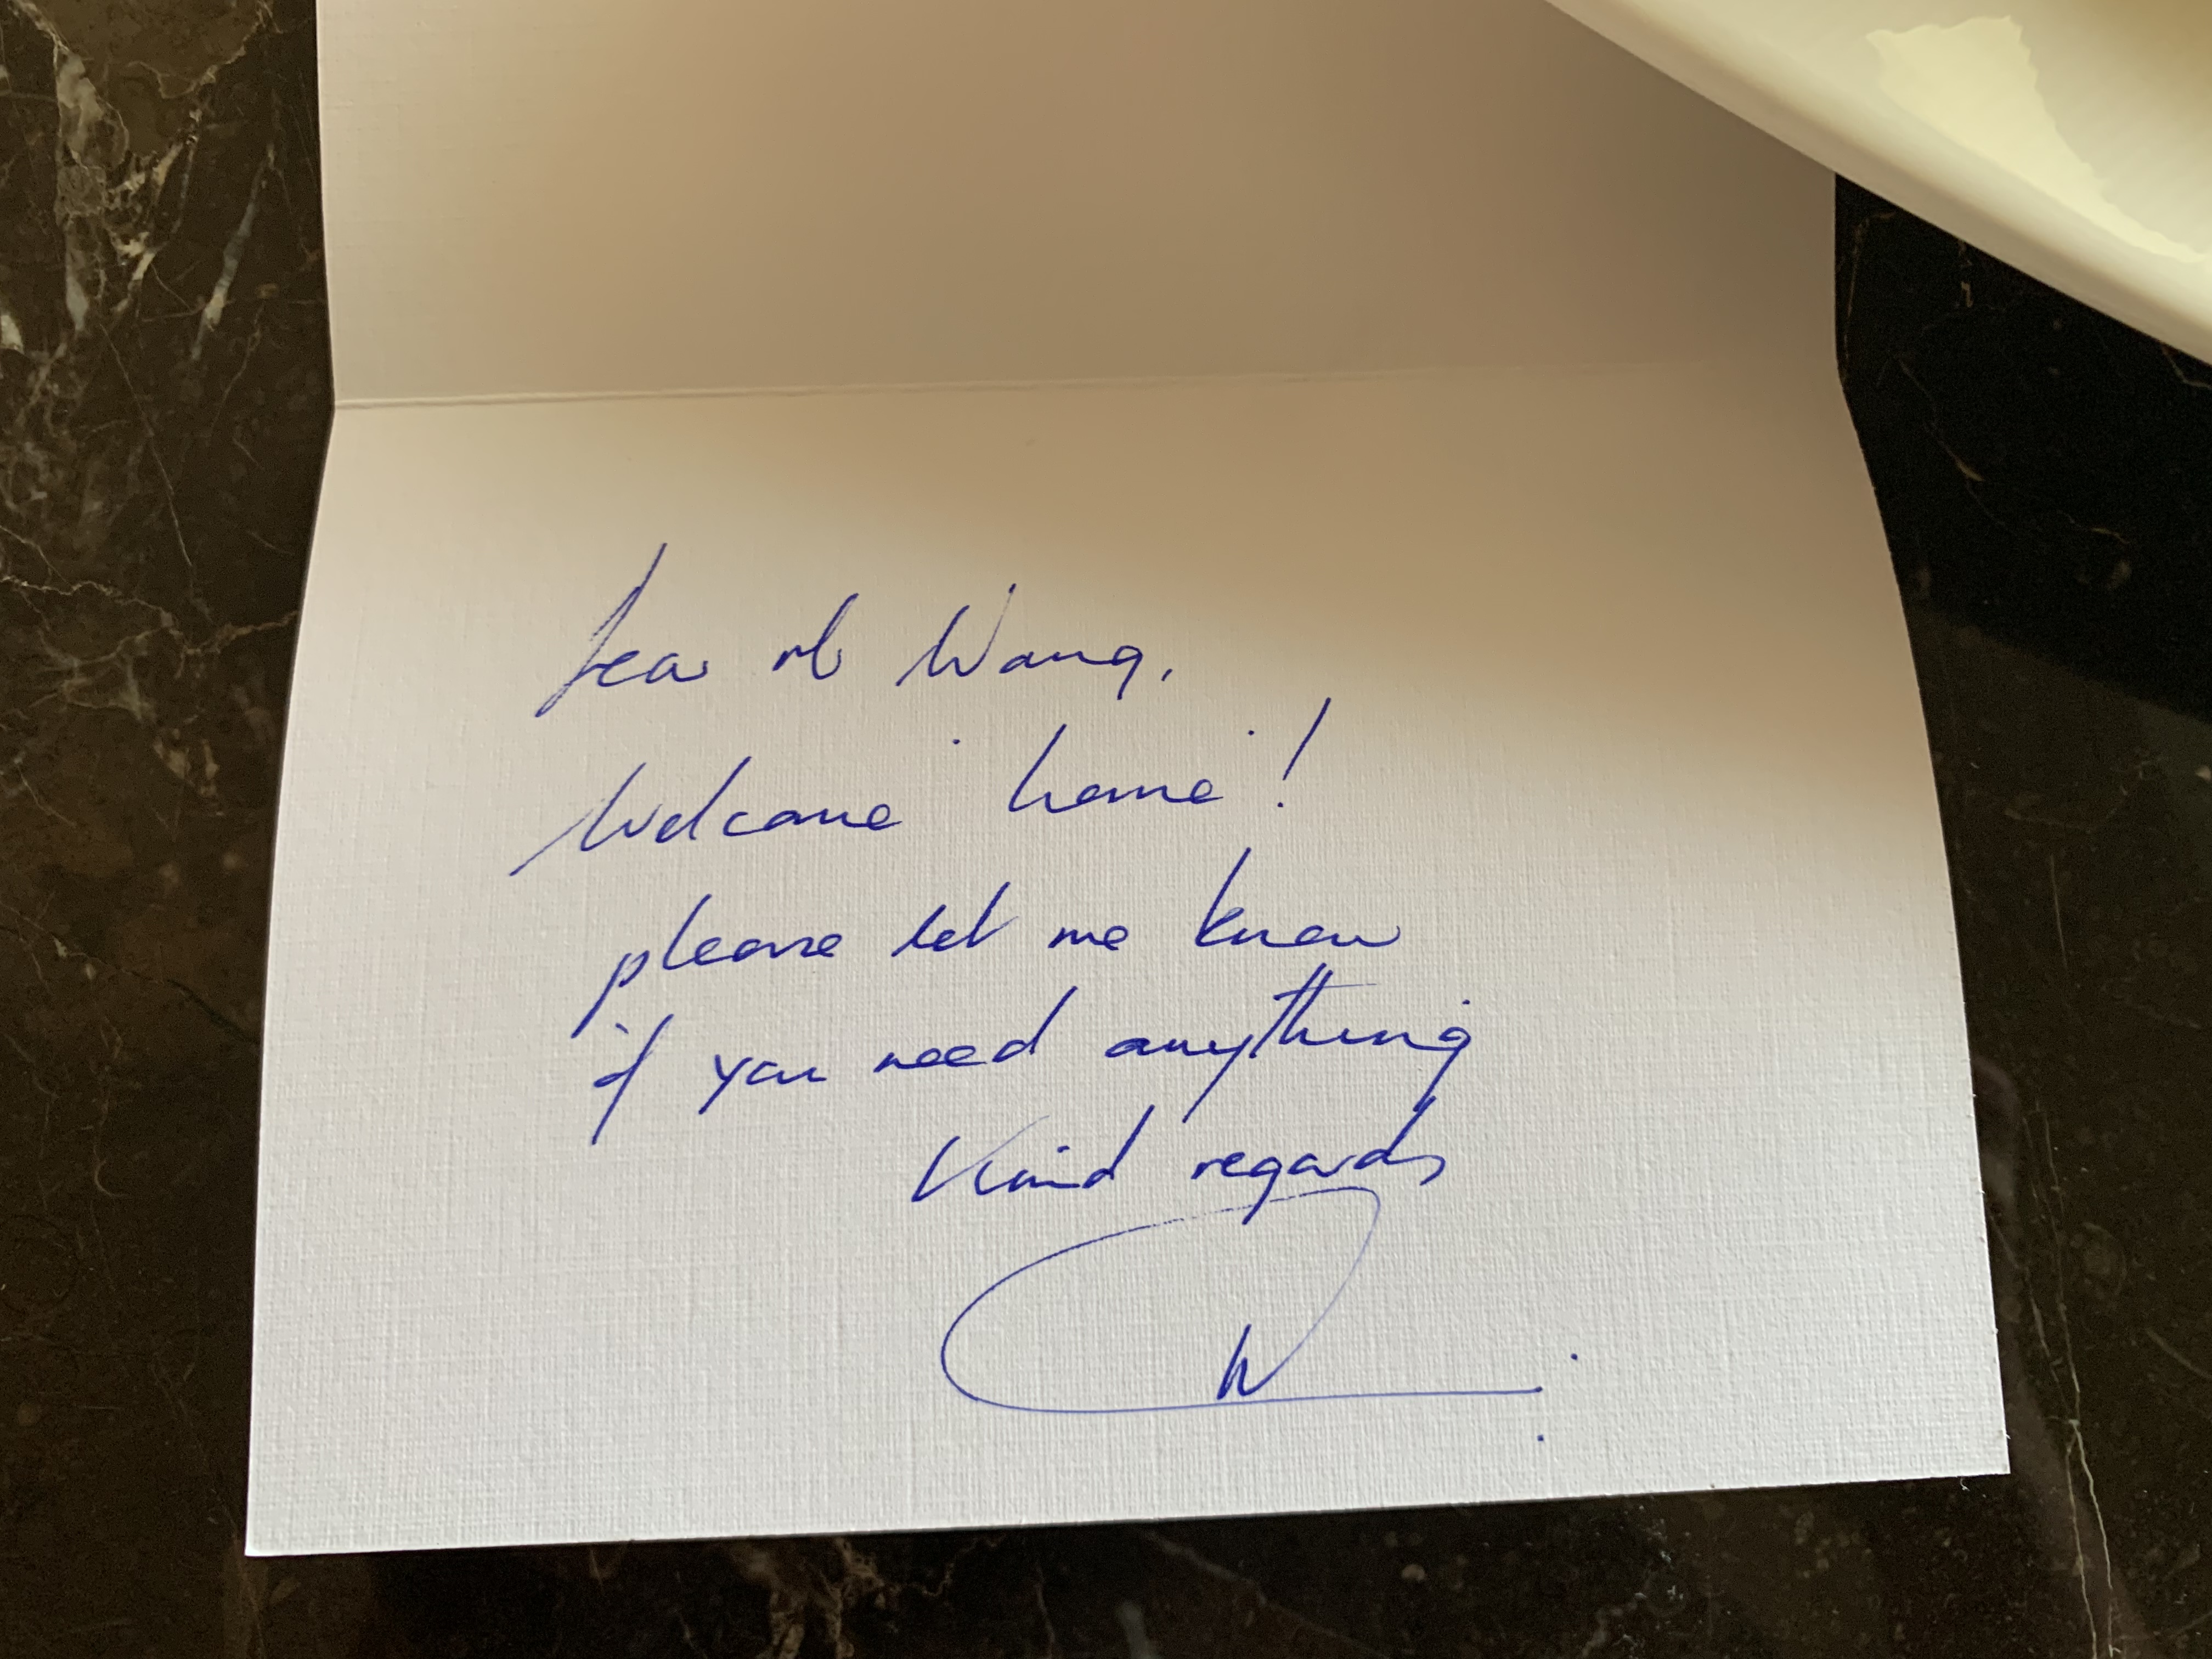 Dear Mr Wang,
Welcome home!
please let me know
if you need anything
Kind regards